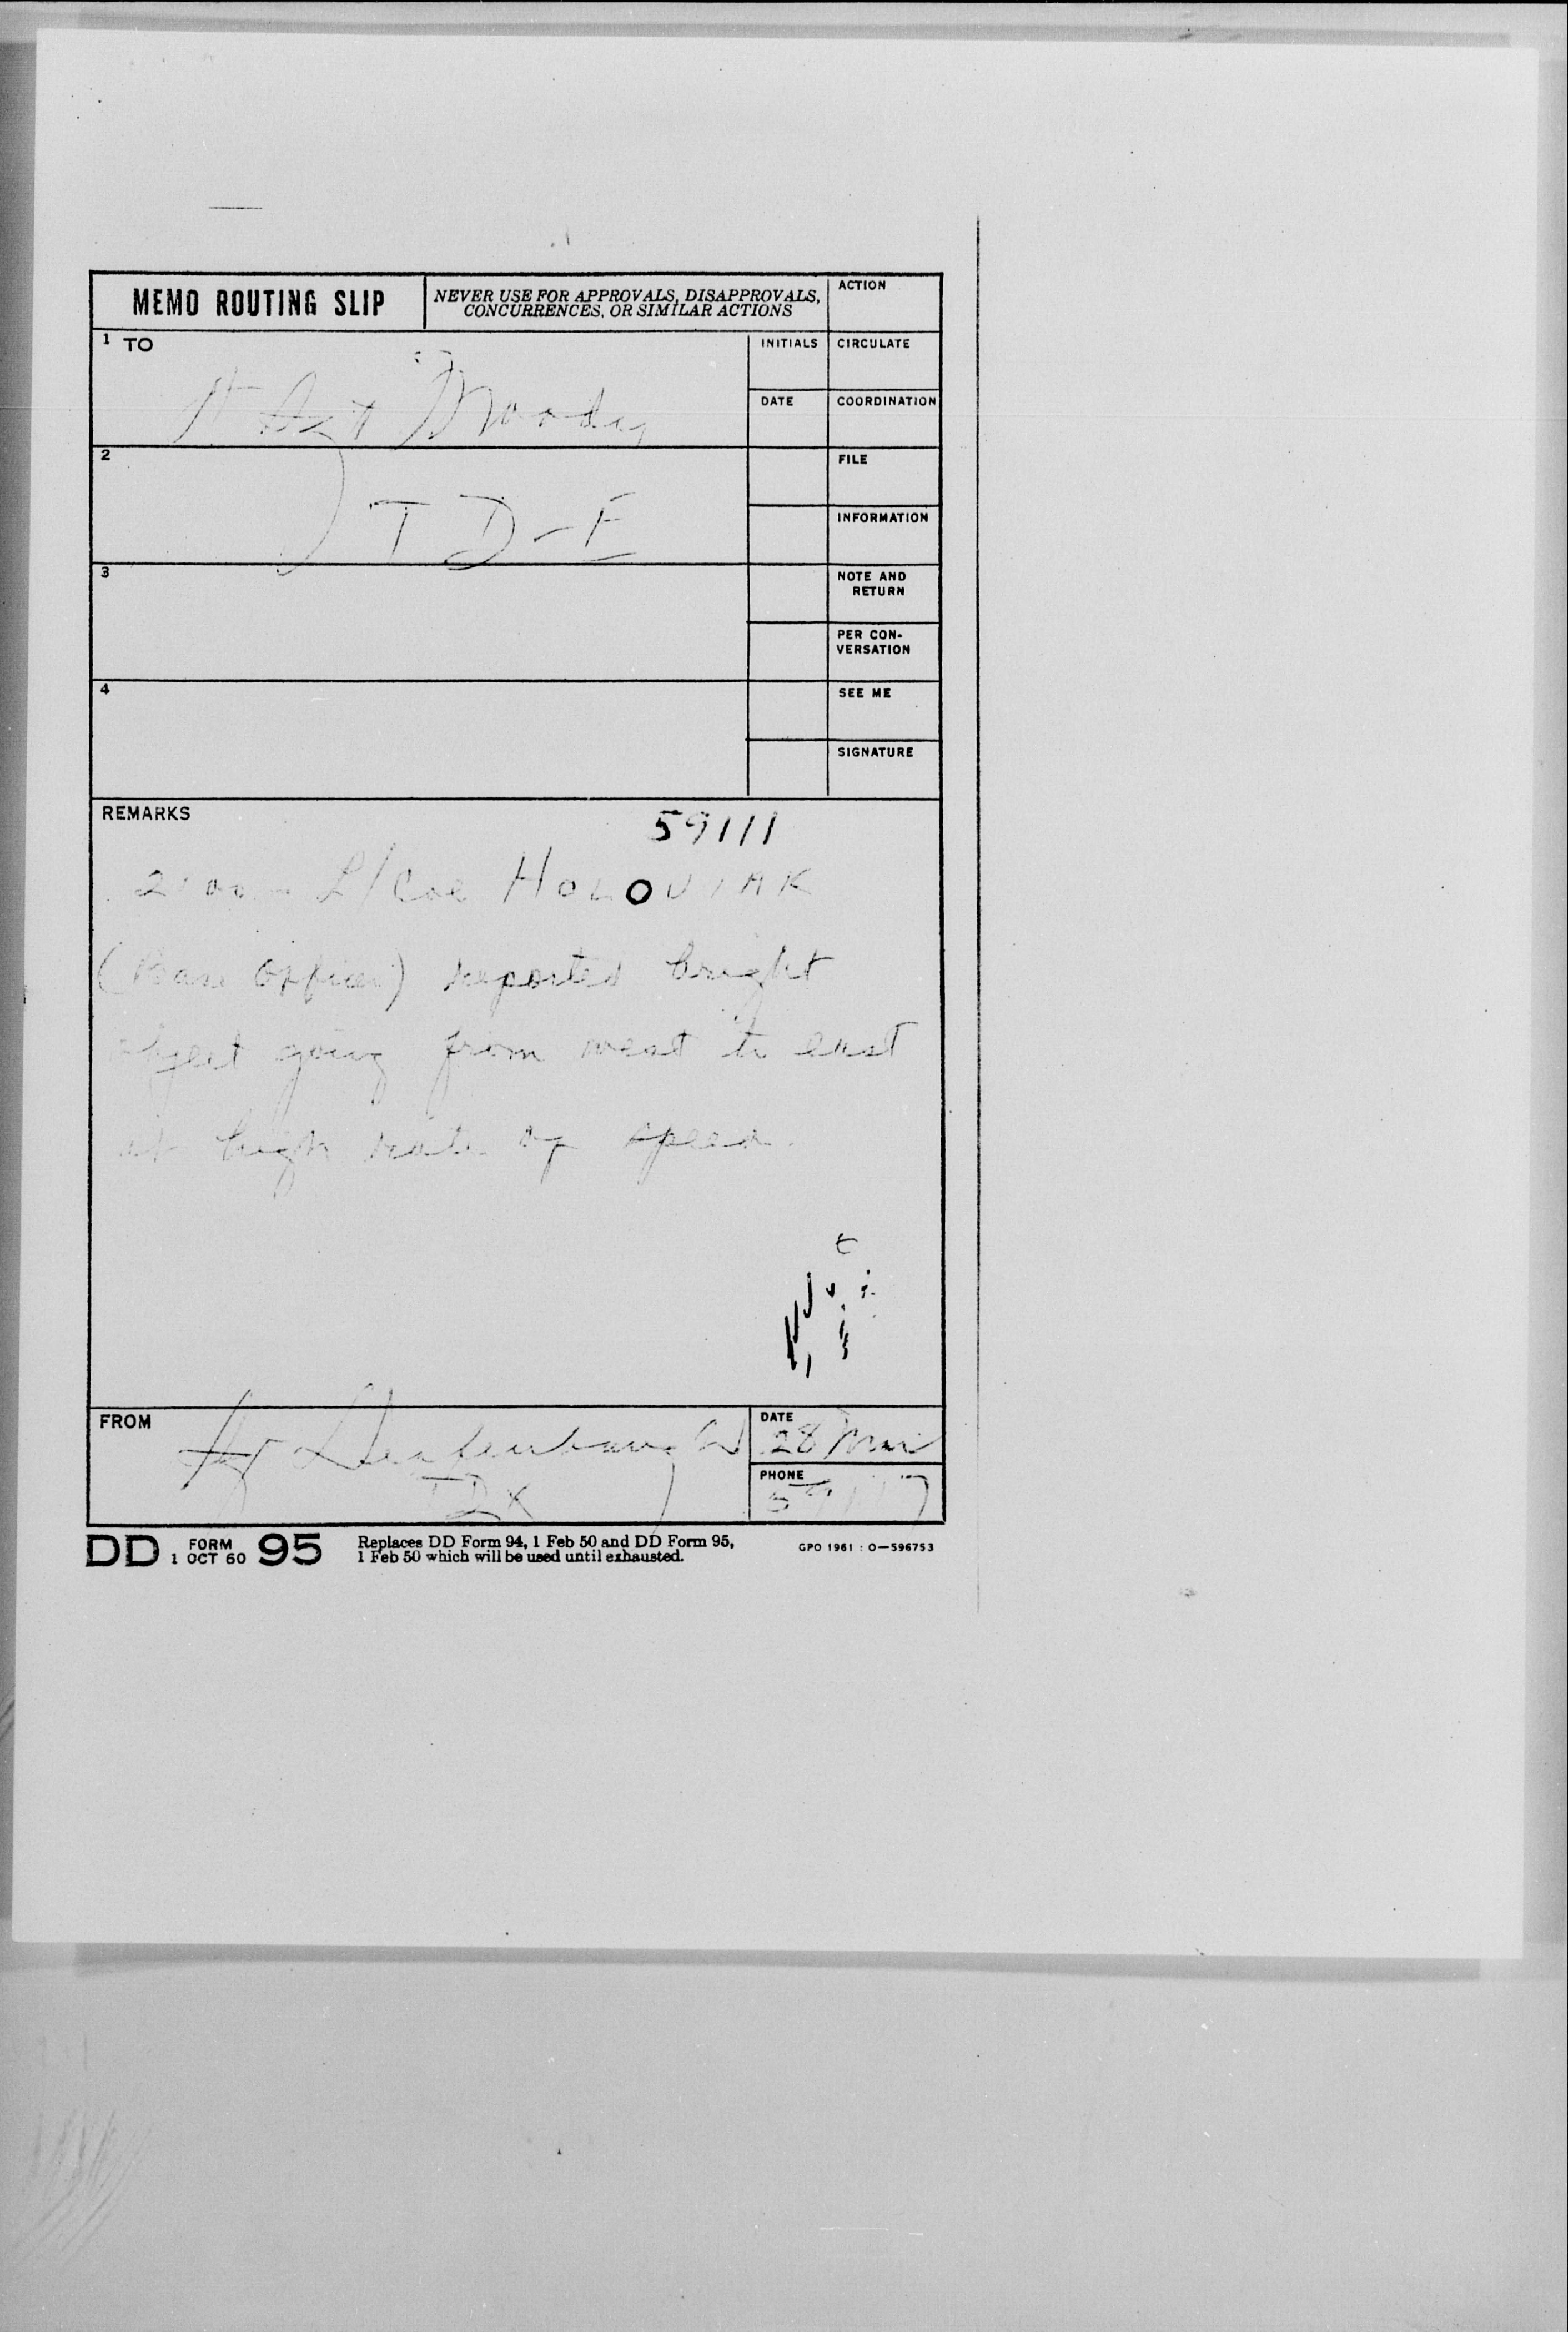 MEMO ROUTING SLIP
NEVER USE FOR APPROVALS, DISAPPROVALS,
CONCURRENCES, OR SIMILAR ACTIONS
ACTION
1 TO
Sgt Moody
INITIALS
CIRCULATE
DATE
COORDINATION
2
TD-E
FILE
INFORMATION
3
NOTE AND
RETURN
PER CON-
VERSATION
4
SEE ME
SIGNATURE
REMARKS
59111
2100 - L/Col HOLOVIAK
(Base Officer) reported bright
object going from west to east
at high rate of speed.
FROM
TDX
DATE
28 Mar
PHONE
DD FORM 95
1 OCT 60
Replaces DD Form 94, 1 Feb 50 and DD Form 95,
1 Feb 50 which will be used until exhausted.
GPO 1961 : O—596753